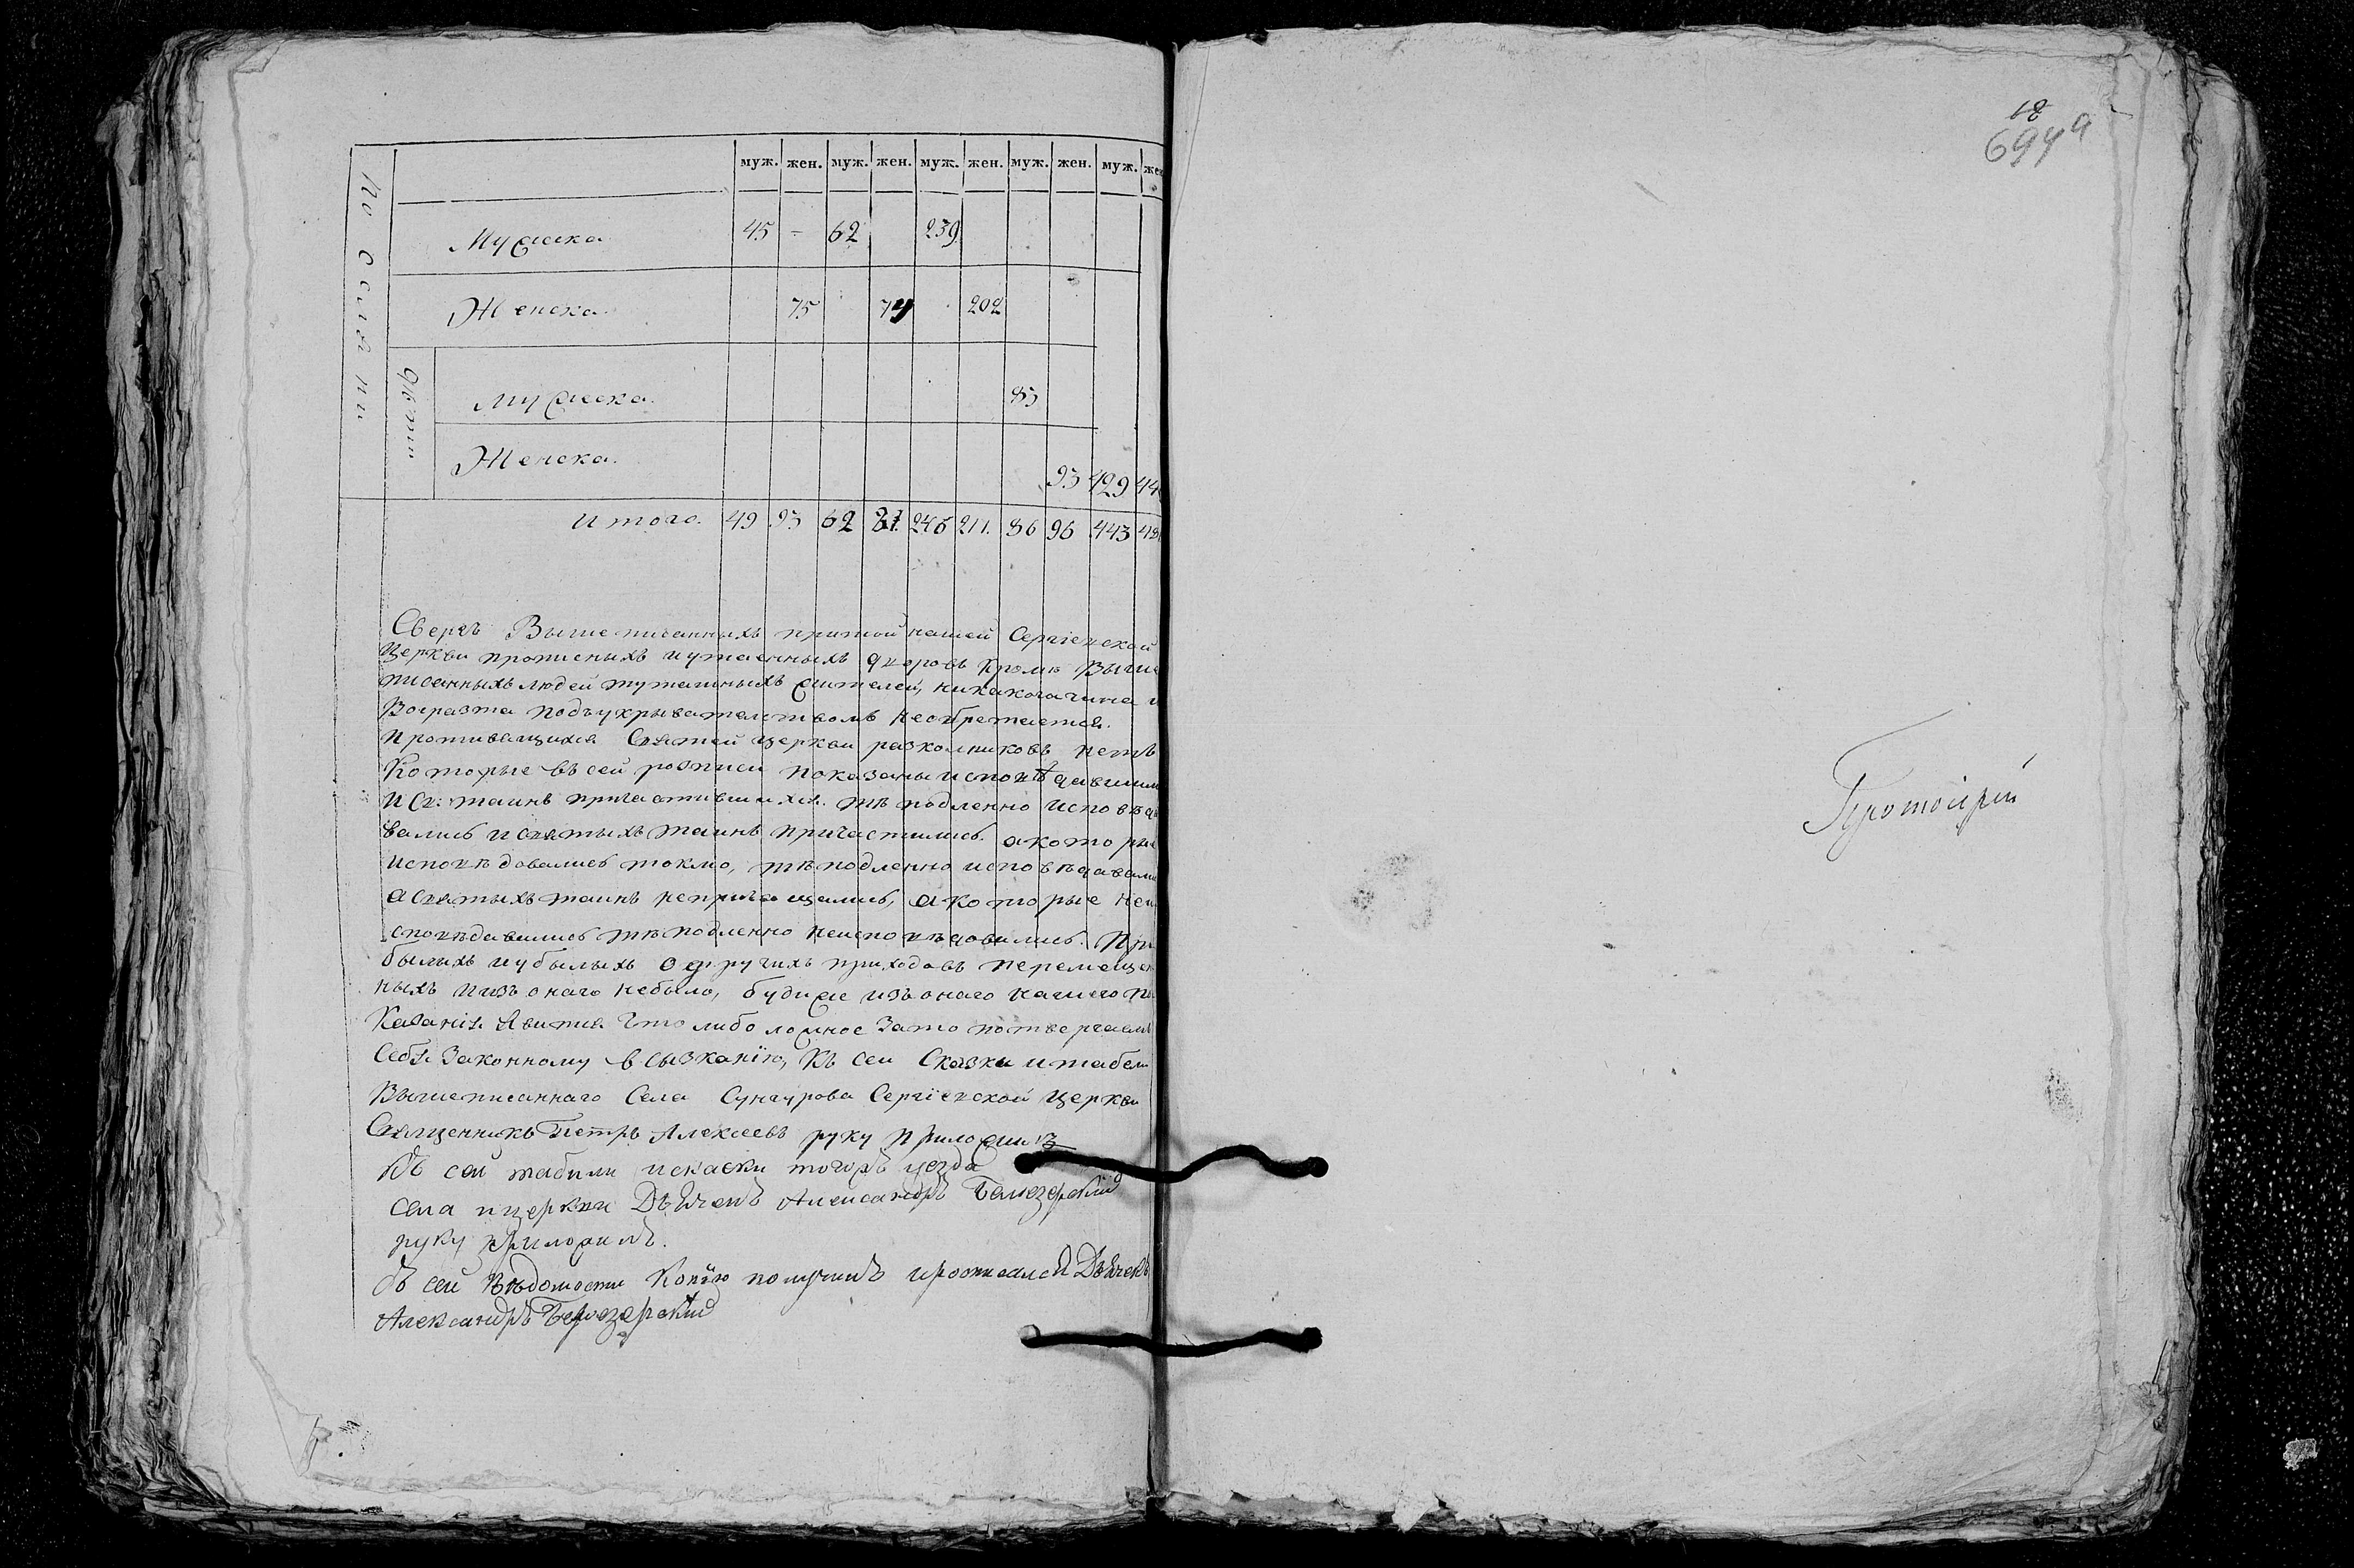 18
694а
муж. жен. муж. жен. муж. жен. муж. жен. муж. жен
поселяни
Мужеска 45 - 62 239
Женска 75 74 202
дѣти
Мужеска 83
Женска. 93 429 44
Итого. 49 93 62 81. 246 211. 86 96 443 48
Сверхъ Вышеписанныхъ притой нашей Сергіевской
церкви прописныхъ иутаенныхъ дворовъ кроме Выше
писанныхъ людей туташныхъ жителей, никакогачина и
Возраста подъукрывателствомъ необретается.
противящихся Святей церкви разколниковъ нетъ
Которые въ сей росписи показаны исповѣдавшими
и Св: таинъ причастившихся. тѣ подленно исповѣдо
вались и святыхъ таинъ причастились. а которые
исповѣдовались токмо, тѣ подленно исповѣдавали
а Святыхъ таинъ непричащались, а которые неи
сповѣдавались тѣ подленно неисповѣдовались. При
былыхъ иубылыхъ одругихъ приходовъ перемещен
ныхъ иизъ онаго небыло, будиже изъ онаго нашего по
Казанія Явится Что либо ложное Зато потвергаемъ
Себя Законному взысканїю, Къ сеи Сказки итабели
Вышеписаннаго Села Сунгурова Сергїевской церкви
Священникъ Петръ Алексеевъ руку приложилъ
Къ сей табили искаски тогожъ уезда
села ицеркви Дьячекъ Александръ Белозерский
руку приложилъ.
съ сей Вѣдомости Копїю получилъ иросписался Дьячекъ
Александръ Белозерский
Протоіерей